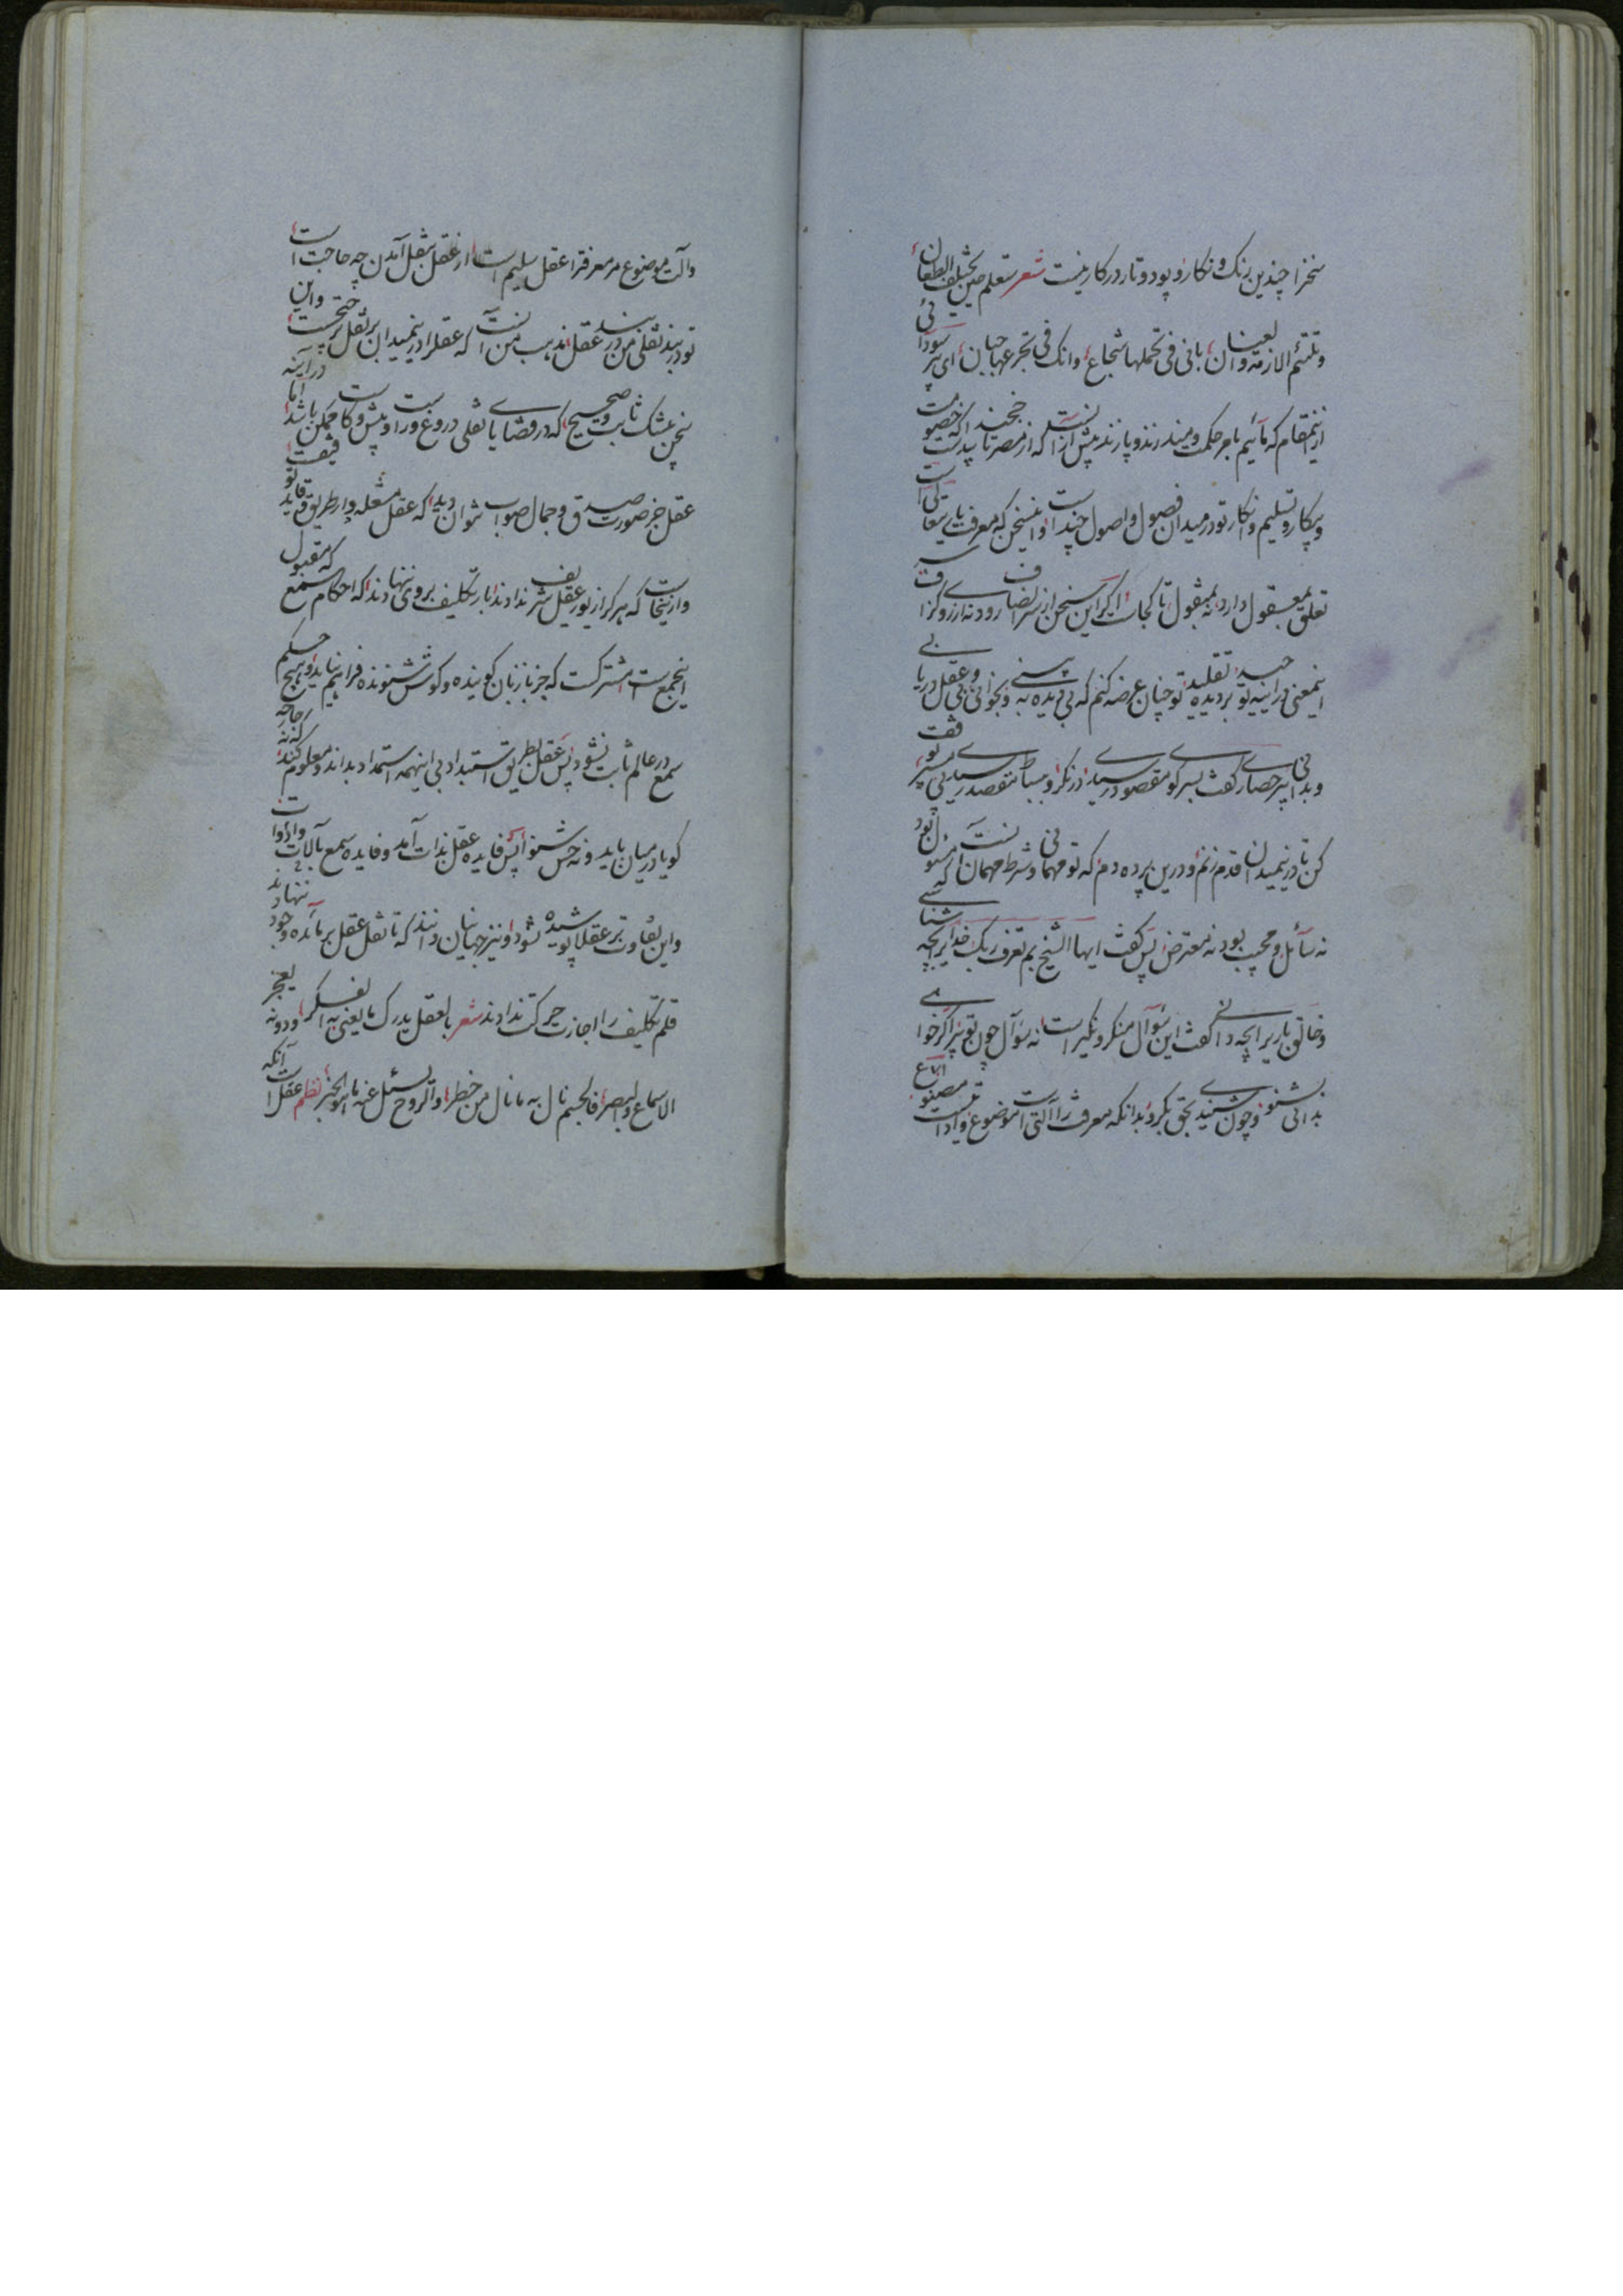 سخنرا چندین رنک و نکار و پود و تار در کار نیست شعر ستعلم حین یختلف الطعان
و تلتئم الازمه و العنان بانی فی تحملها شجاع و انک فی تجرعها جبان ای پیر سودائی
ازین مقام که مائیم تا سر حکمت و میدان زند و پازند بیش از آنست که از مصر تا خجند که خصومت
و پیکار و تسلیم و انکار تو در میدان فصول و اصول چیست و این سخن که معرفت باریتعالی
تعلق بمعقول دارد نه بمنقول تا کجاست اگر این سخن از سر انصاف رود نه از روی کزاف
این معنی در آینه تو بردیده تقلید تو چنان عرضه کنم که بی دیده به بینی و بی عقل دریابی
و بدانی پیر حصاری گفت بسر کوی مقصود رسیدی درنکر و ببساط مقصد رسیدی پی سپر موقف
کن تا درین میدان قدم زنم و درین پرده دم که تو مهمانی و شرط مهمان آنست که مسئول بود
نه سائل و مجیب بود نه معترض پس گفت ایها الشیخ بم تعرف ربک خدایرا بچه شناسی
و خالق باری را بچه دانی گفت این سؤال منکر و نکیر است نه سؤال چون تو پیر اگر خواهی
بدانی بشنو و چون شنیدی بحق بکرو بدانکه معرفت را آلتی است موضوع و اداتیست مصنوع
و آلت موضوع مر معرفترا عقل سلیم است از عقل بنقل آمدن چه حاجتست
تو در بند نقلی من در بند عقل مذهب من آنست که عقلرا درین میدان بر نقل ترجیحست و این
سخن بیشک ثابت و صحیح که در قضایای نقلی دروغ و راست و بیش و کاست ممکن باشد اما در آینه
عقل جز صورت صدق و جمال صواب نتوان دید که عقل مشعله دار طریق حقیقت و قاید
و ازینجاست که هر کرا از نور عقل شرف ندادند بار تکلیف بر وی ننهادند که احکام سمع
این جمع مشترکست که جز با زبان کوینده و کوش شنونده فراهم نیاید و هیچ حکم
سمع در عالم ثابت نشود پس عقل بطریق استبداد بی اینهمه استمداد بداند و معلوم کند که نه
کویا در میان باید و نه حس شنوا پس فایده عقل بذات آمد و فایده سمع بآلات و ادوات
و این تفاوت بر عقلا پوشیده نشود و نیز جهانیان دانند که تا نقل عقل بر مائده وجود ننهادند
قلم تکلیف را اجازت حرکت ندادند شعر بالعقل یدرک ما یعنی به الفکر و دونه یعجز
الاسماع و البصر فالجسم نال به ما نال من خطر و الروح یسئل عنه ما هو الخبر نظم عقلست آنکه